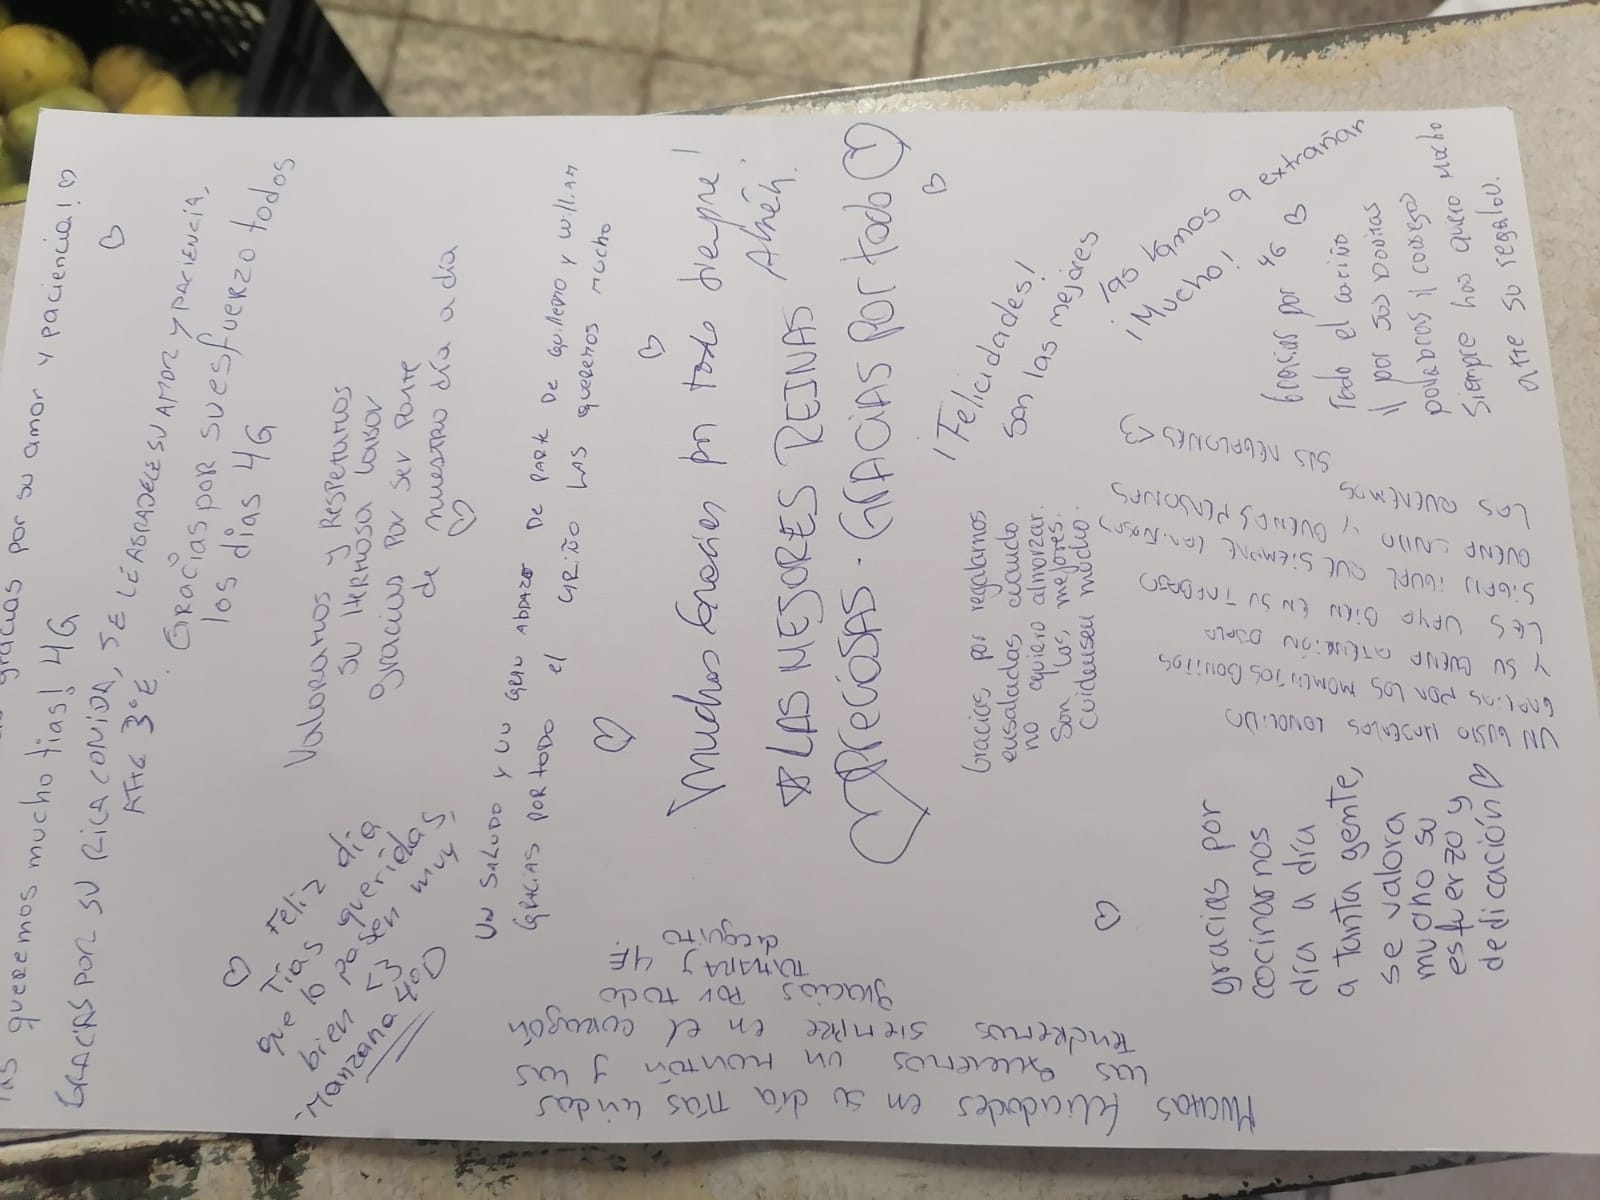 gracias por su amor y paciencia! ♡
queremos mucho tias! 4G
GRACIAS POR SU RICA COMIDA, SE LE AGRADECE SU AMOR Y PACIENCIA,
ATTE 3°E.
GRACIAS POR SU ESFUERZO todos
los días 4G
Valoramos y Respetamos
su Hermosa labor
gracias Por ser Parte
de nuestro día a día
♡ Feliz día
Tias queridas
que lo pasen muy
bien <3
-Manzana 4°D
UN SALUDO Y UN GRAN ABRAZO DE PARTE DE Guillermo y William
GRACIAS POR TODO el CARIÑO LAS queremos mucho
¡Muchas Gracias por todo siempre!
☆ LAS MEJORES REINAS
♡ PRECIOSAS. GRACIAS POR todo ♡
¡Felicidades!
Son las mejores
¡las vamos a extrañar
¡Mucho!
Gracias por regalarnos
ensaladas cuando
no quiero almorzar.
Son las mejores.
Cuídense mucho.
Gracias por 4G ♡
Todo el cariño
y por sus bonitas
palabras y consejo
Siempre las quiero Mucho
atte su regalón.
UN GUSTO HABERLAS CONOCIDO
GRACIAS POR LOS MOMENTOS BONITOS
Y SU BUENA ATENCIÓN OJALA
LES VAYA BIEN EN SU TRABAJO
SIGAN IGUAL QUE SIEMPRE CARIÑOSAS
BUENA ONDA Y BUENAS PERSONAS
LAS QUEREMOS
SUS REGALONES <3
gracias por
cocinarnos
día a día
a tanta gente,
se valora
mucho su
esfuerzo y
dedicación ♡
Muchas felicidades en su día Tías lindas
las queremos un montón y las
tendremos siempre en el corazón
gracias por todo
4E